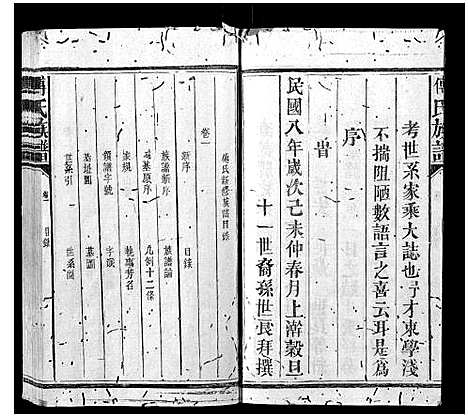 傅氏族譜
考世系家乘大誌也予才東學淺
不揣阻陋數語言之喜云耳是為
序
旹
民國八年歲次己未仲春月上澣穀旦
十一世裔孫世㫰拜撰
傅氏族譜
卷一
目錄
傅氏經修族譜目錄
卷一
新序
目錄
族譜新序
族譜論
凡例十二條
族規
執事芳名
領譜字號
字派
基址圖
墓圖
世系引
世系圖